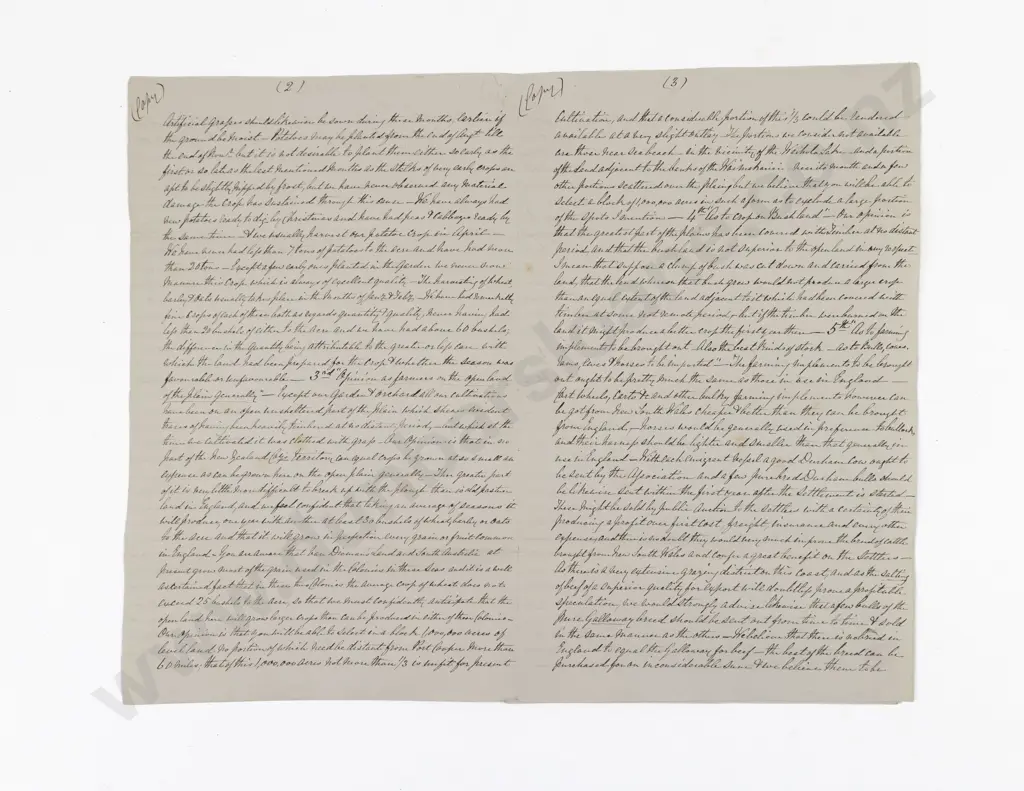 (Copy)
(2)
Artificial grapes should likewise be sown during these months, earlier if
the ground be moist – Potatoes may be planted from the end of Augt till
the end of Novr but it is not desirable to plant them either so early as the
first or so late as the last mentioned months as the stalks of very early crops are
apt to be slightly nipped by frost, but we have never observed any material
damage the crop has sustained through this cause – We have always had
new potatoes ready to dig by Christmas and have had peas & Cabbages ready by
the same time – & we usually harvest our potatoe Crop in April –
We have never had less than 7 tons of potatoes to the acre and have had more
than 20 tons – Except a few early ones planted in the Garden we never
manure this Crop which is always of excellent quality – The harvesting of Wheat
barley & Oats usually takes place in the months of Jany & Feby – We have had remarkably
fine Crops of each of them both as regards quantity & quality, never having had
less than 30 bushels of either to the acre and we have had above 60 bushels,
the difference in the quantity being attributable to the greater or less care with
which the land had been prepared for the crop & whether the season was
favourable or unfavourable – 3rd "Opinion as farmers on the open land
of the plain generally" – Except our Garden & orchard all our cultivations
have been on an open unsheltered part of the Plain which shews evident
traces of having been heavily timbered at no distant period, – but which at the
time we cultivated it was clothed with grass – Our Opinion is that in no
part of the New Zealand Territory can equal crops be grown at as small an
expense as can be grown here on the open plain generally – The greater part
of it is very little more difficult to break up with the plough than is old pasture
land in England, and we feel confident that taking an average of seasons it
will produce one year with another at least 30 bushels of wheat, barley or oats
to the acre and that it will grow in proportion every grain or fruit common
in England – You are aware that Van Diemens Land and South Australia at
present grow most of the grain used in the Colonies in these Seas and it is a well
ascertained fact that in these two Colonies the average crop of wheat does not
exceed 25 bushels to the acre, so that we most confidently anticipate that the
open land here will grow larger crops than can be produced in either of these Colonies –
Our opinion is that you will be able to select in a block 1,000,000 acres of
level land, no portion of which need be distant from Port Cooper more than
60 miles; that of this 1,000,000 acres not more than 1/3 is unfit for present
(Copy)
(3)
cultivation, and that a considerable portion of this 1/3 could be rendered
available at a very slight outlay. The portions we consider not available
are those near sea beach – in the vicinity of the Waihola Lake – and a portion
of the land adjacent to the banks of the Waimakirri near its mouth and a few
other portions scattered over the plain; but we believe that you will be able to
select a block of 1,000,000 acres in such a form as to exclude a large portion
of the spots I mention – 4th As to crop on Bushland – Our opinion is
that the greatest part of the plains has been covered with Timber at no distant
period and that the bushland is not superior to the openland in any respect
I mean that suppose a clump of bush was cut down and carried from the
land, that the land whereon that bush grew would not produce a larger crop
than an equal extent of the land adjacent to it which had been covered with
timber at some not remote period, – but if the timber were burned on the
land it might produce a better crop the first year then – 5th "As to farming
implements to be brought out – Also the best kinds of stock – as to Bulls, cows,
rams, ewes & horses to be imported" – The farming implements to be brought
out ought to be pretty much the same as those in use in England –
Cart wheels, Carts & and other bulky farming implements however can
be got from New South Wales cheaper & better than they can be brought
from England – Horses would be generally used in preference to bullocks
and their harness should be lighter and smaller than that generally in
use in England – With each emigrant vessel a good Durham cow ought to
be sent by the Association and a few pure bred Durham bulls should
be likewise sent within the first year after the Settlement is started –
These might be sold by public Auction to the settlers with a certainty of their
producing a profit over first cost, freight, insurance and every other
expense, and there is no doubt they would very much improve the breed of cattle
brought from New South Wales and confer a great benefit on the Settlers –
As there is a very extensive grazing district on this coast, and as the salting
of beef of a superior quality for export will doubtless prove a profitable
speculation, we would strongly advise likewise that a few bulls of the
pure Galloway breed should be sent out from time to time & sold
in the same manner as the others – We believe that there is no breed in
England to equal the Galloway for beef – the best of the breed can be
purchased for an inconsiderable sum & we believe them to be